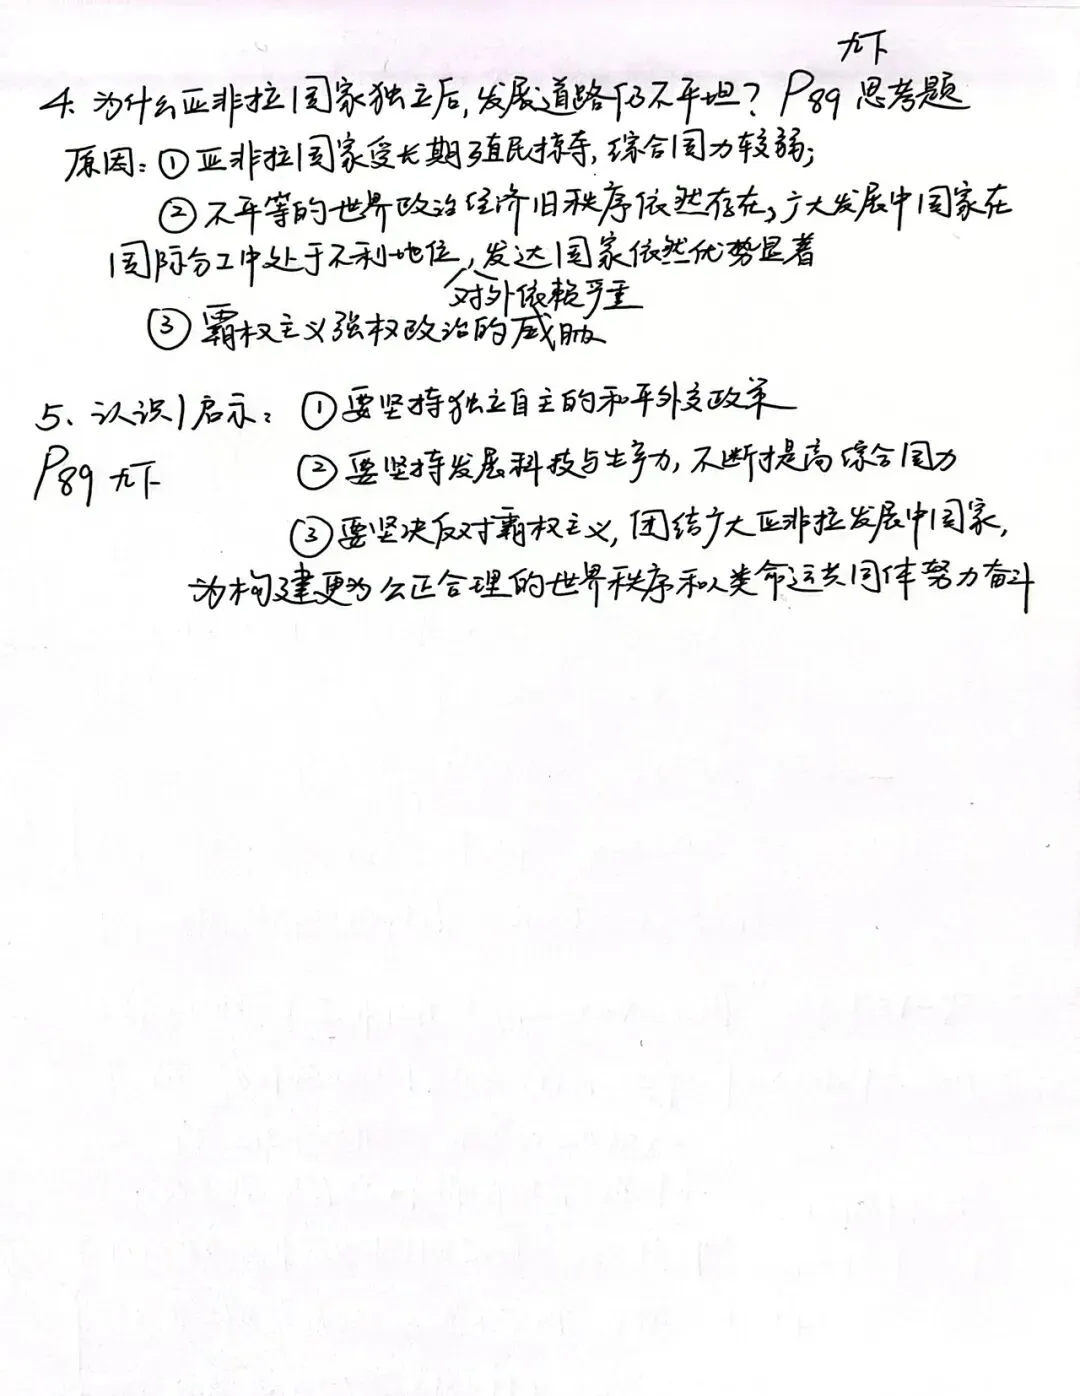 九下
4. 为什么亚非拉国家独立后,发展道路仍不平坦? P89 思考题
原因:①亚非拉国家受长期殖民掠夺,综合国力较弱;
②不平等的世界政治经济旧秩序依然存在,广大发展中国家在
国际分工中处于不利地位,发达国家依然优势显著
对外依赖严重
③霸权主义强权政治的威胁
5、认识/启示:①要坚持独立自主的和平外交政策
P89 九下 ②要坚持发展科技与生产力,不断提高综合国力
③要坚决反对霸权主义,团结广大亚非拉发展中国家,
为构建更为公正合理的世界秩序和人类命运共同体努力奋斗